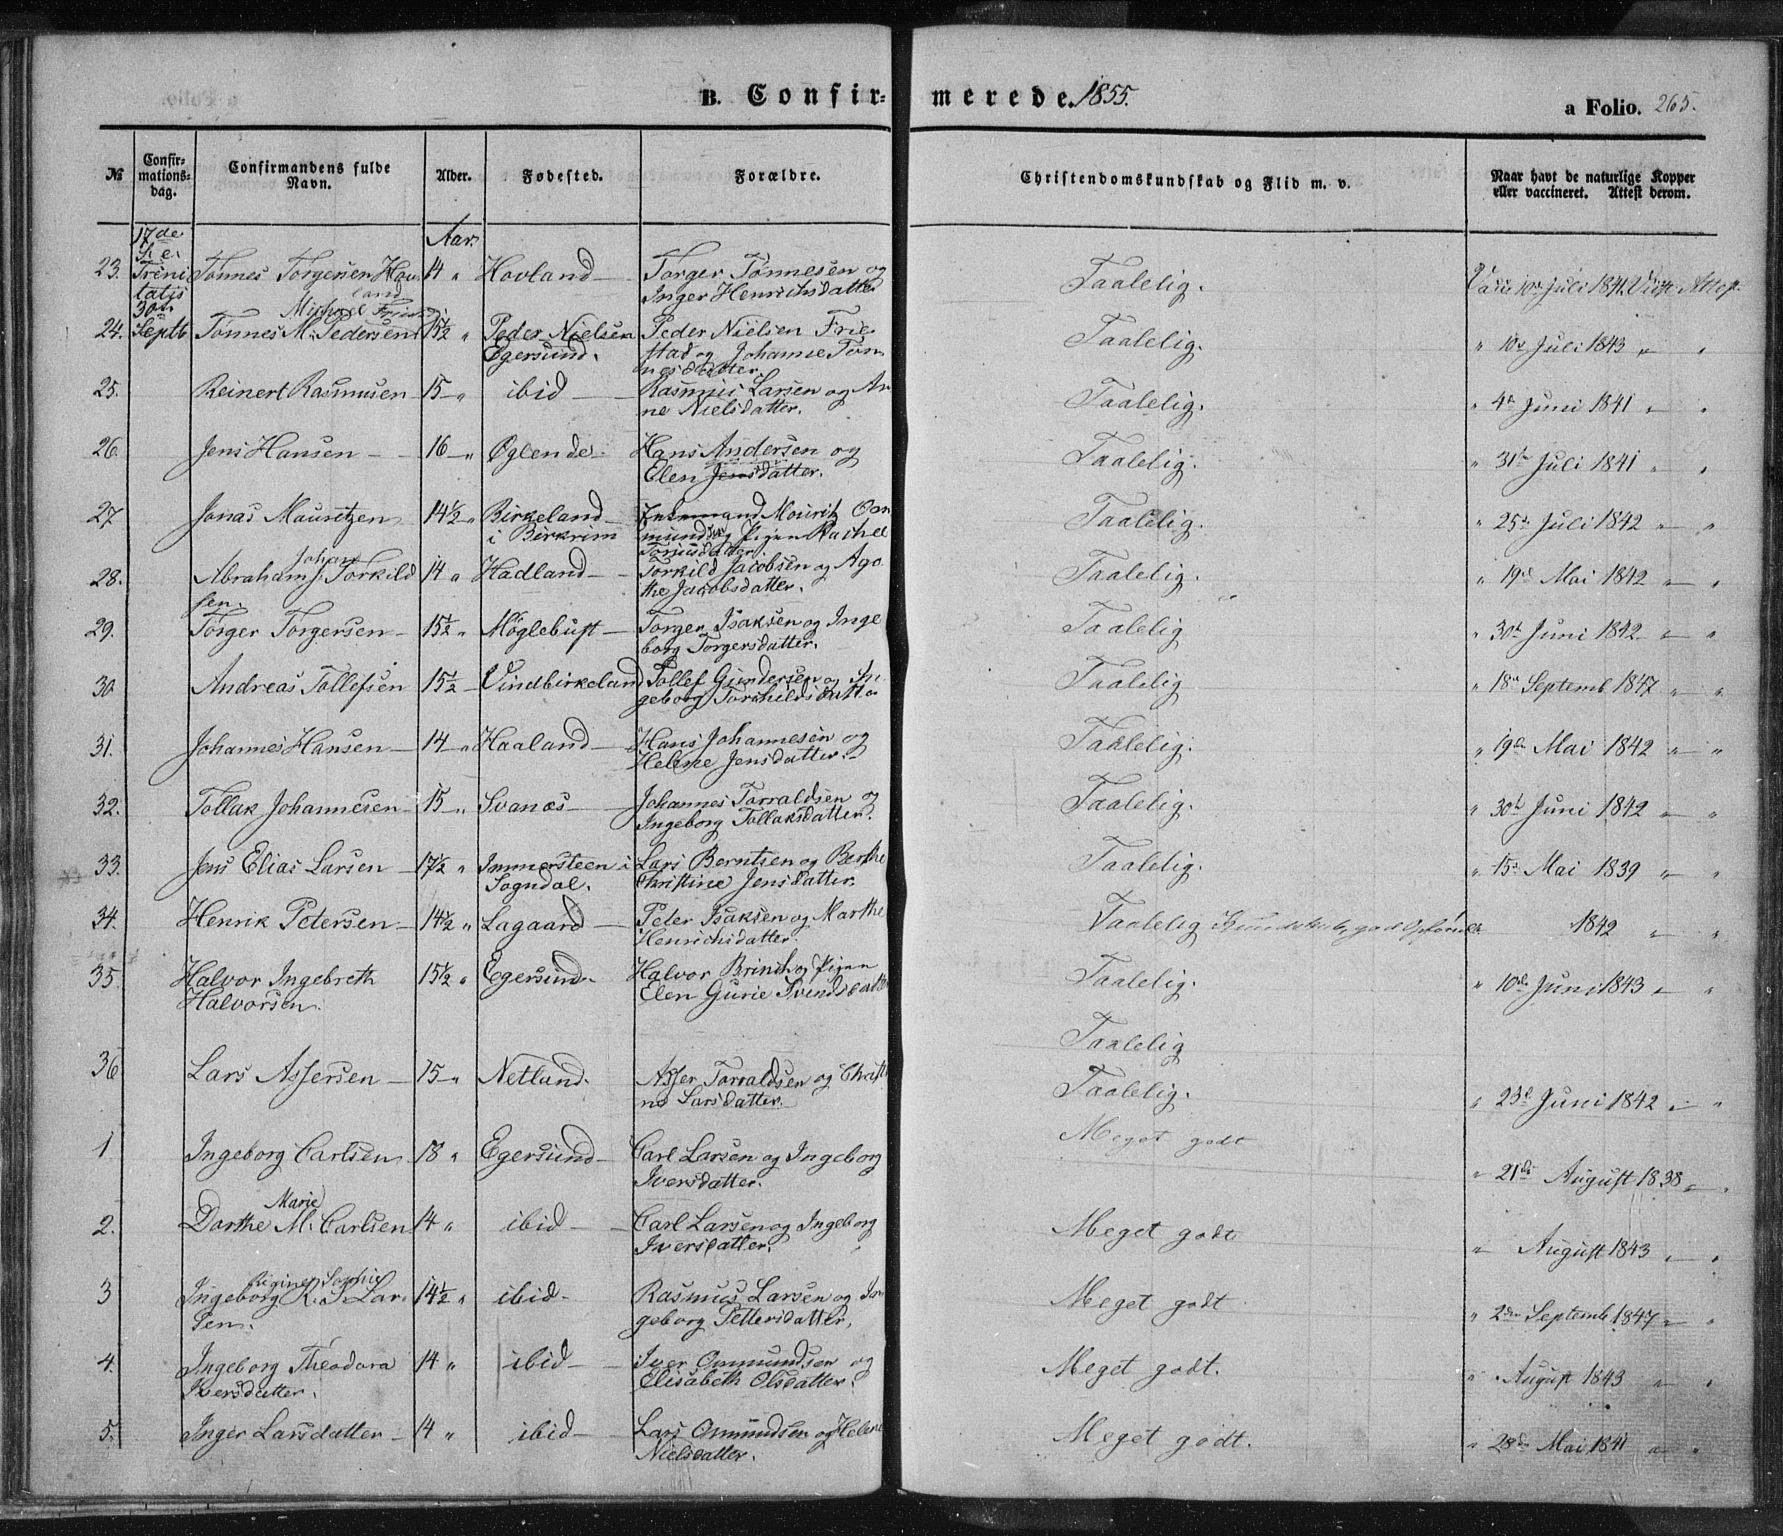 B. Confir-merede. 1855.
a Folio. 265.
№ Confir-mations-dag. Confirmandens fulde Navn. Alder. Fødested. Forældre. Christendomskundskab og Flid m. v. Naar havt de naturlige Kopper eller vaccineret. Attest derom.
17de S. e. Aar.
23. Trini Tønnes Torgersen Hov 14 " Hovland — Torger Tønnesen og Taalelig. Vacc. 10de Juli 1841. Vidst Attest.
tatis land Inger Henrichsdatter
30te Michael Fries
24. Septb Tønnes M. Pedersen 15½ " Peder Nielsen Peder Nielsen Frie Taalelig. " 10de Juli 1843 " "
Egersund. stad og Johanne Tøn
nesdatter.
25. Reinert Rasmusen 15 " ibid — Rasmus Larsen og An Taalelig. " 4de Juni 1841 " "
ne Nielsdatter.
26. Jens Hansen — 16 — " Øglende — Hans Andersen og Taalelig. " 31te Juli 1841 " "
Elen Jensdatter.
27 Jonas Mauritzen 14½ " Birkeland — Mouritz Om Taalelig. " 25de Juli 1842 " "
i Birkrim mundsen og Pigen Rachel
Torjusdatter.
Johan
28. Abraham J. Torkild 14 " Hadland — Torkild Jacobsen og Aga Taalelig. " 19de Mai 1842 " "
sen. the Jacobsdatter.
29. Torger Torgersen — 15½ " Møglebust — Torger Isaksen og Inge Taalelig " 30te Juni 1842 " "
borg Torgersdatter.
30 Andreas Tollefsen 15½ — Vindbirkeland Tollef Gundersen og In Taalelig " 18de Septemb 1847 " "
geborg Torchildsdatter
31. Johannes Hansen — 14 — " Haaland — Hans Johannesen og Taalelig. " 19de Mai 1842 " "
Helene Jensdatter.
32. Tollak Johannesen — 15 — " Svanæs — Johannes Torraldsen og Taalelig. " 30te Juni 1842 " "
Ingeborg Tollaksdatter.
33. Jens Elias Larsen — 17½ " Immersteen i Lars Berntsen og Berthe Taalelig. " 15de Mai 1839 " "
Sogndal. Christine Jensdatter.
34. Henrik Petersen — 14½ " Lagaard — Peter Isaksen og Marthe Taalelig Kundskab, god Opførsel. 1842 " "
Henrichsdatter.
35. Halvor Ingebreth 15½ " Egersund. Halvor Brinch og Pigen Taalelig. " 10de Juni 1843 " "
Halvorsen. Elen Gurie Svendsdatter
Taalelig
36 Lars Assersen — 15 — " Netland. Asser Torraldsen og Christi Taalelig. " 23de Juni 1842 " "
ne Larsdatter.
1 Ingeborg Carlsen 18 " Egersund — Carl Larsen og Ingeborg Meget godt " 21de August 1838 " "
Iversdatter.
Marie
2. Dorthe M. Carlsen 14 " ibid — Carl Larsen og Ingeborg Meget godt " August 1843 " "
Iversdatter.
Regine Sophie
3 Ingeborg R. S. Lar 14½ " ibid — Rasmus Larsen og In Meget godt " 2den Septemb 1847 " "
sen. geborg Pettersdatter.
4. Ingeborg Theodora 14 " ibid — Iver Ommundsen og Meget godt. " August 1843 " "
Iversdatter. Elisabeth Olsdatter.
5. Inger Larsdatter — 14 " ibid — Lars Ommundsen og Helene Meget godt. " 28de Mai 1841 " "
Nielsdatter.